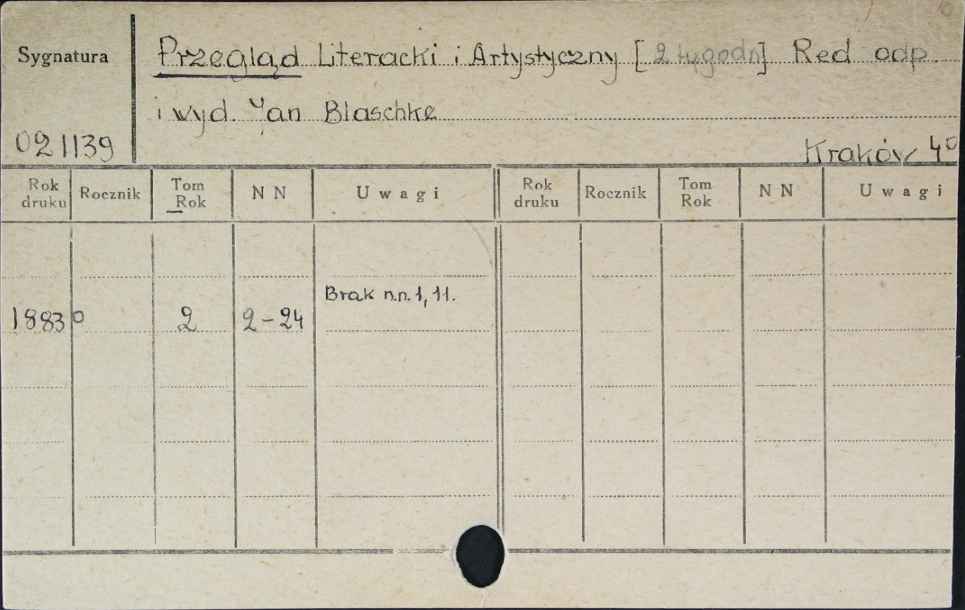 Sygnatura
Przegląd Literacki i Artystyczny [2 tygodn] Red odp.
i wyd. Jan Blaschke
021139
Kraków 4°
Rok druku Rocznik Tom Rok NN Uwagi Rok druku Rocznik Tom Rok NN Uwagi
Brak n.n. 1, 11.
1883 2 2-24